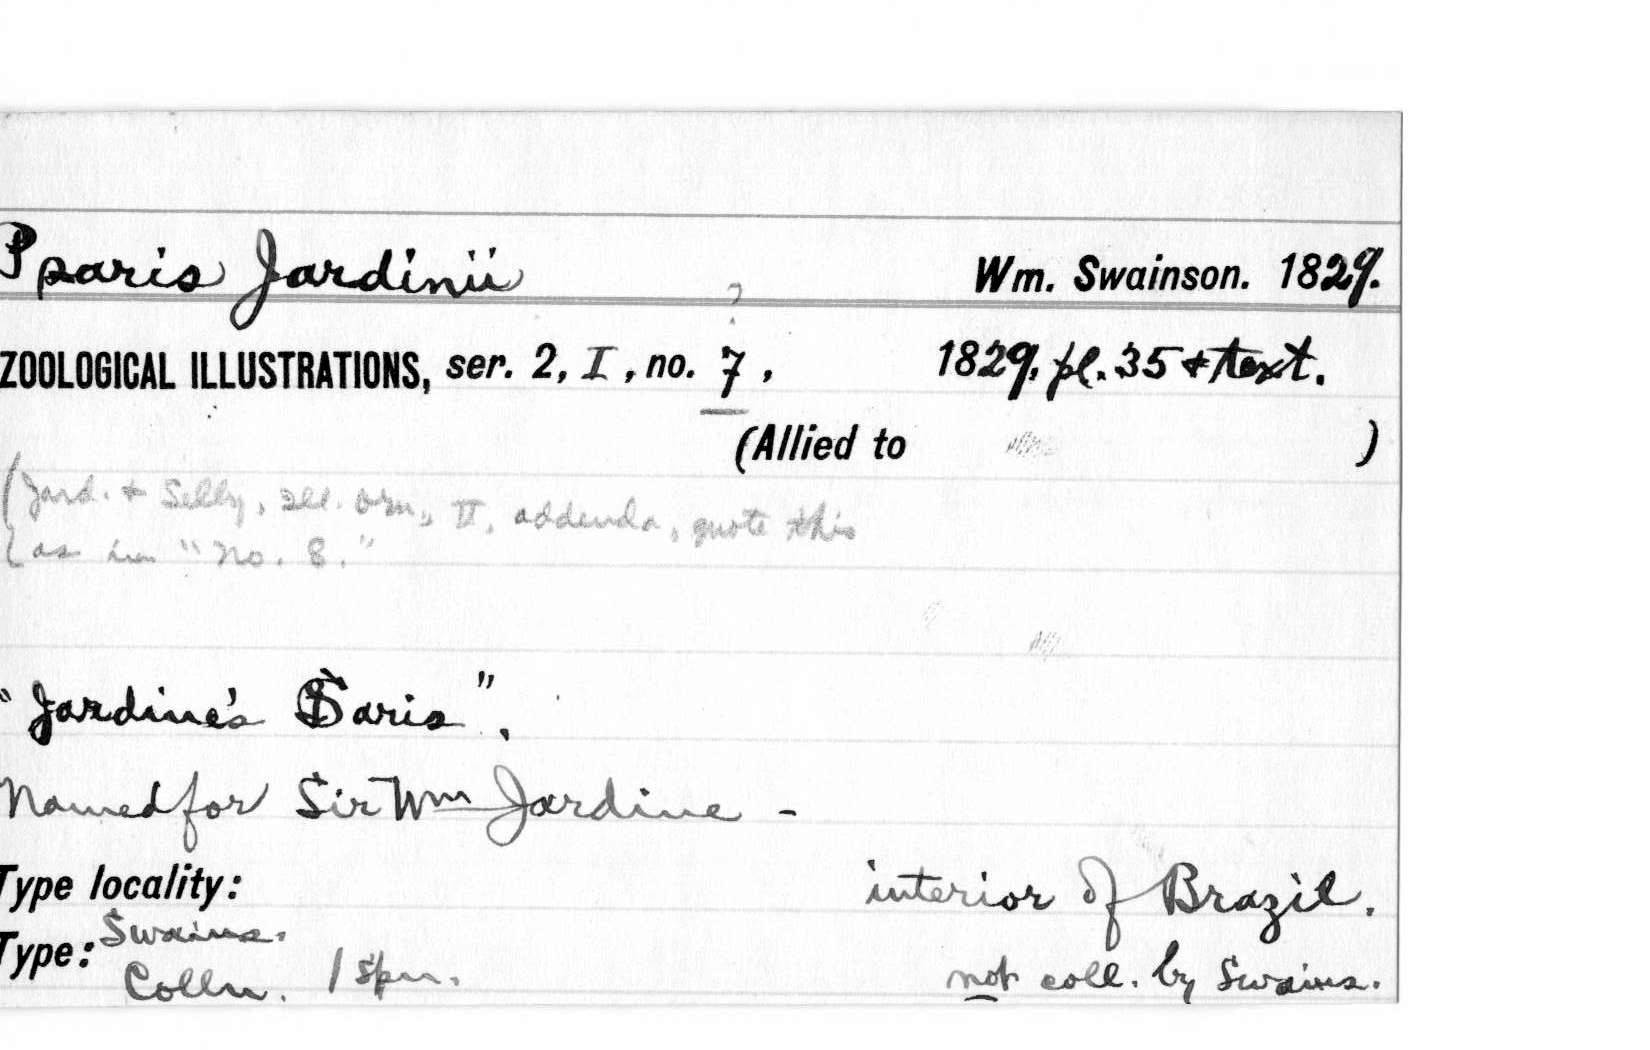 Psaris Jardinii Wm. Swainson. 1829.
?
ZOOLOGICAL ILLUSTRATIONS, ser. 2, I, no. 7, 1829, pl. 35 + text.
(Allied to )
(Jard. + Selby, Ill. Orn., II, addenda, quote this
as in "No. 8."
"Jardine's Psaris".
Named for Sir Wm Jardine -
Type locality: interior of Brazil.
Type: Swains.
Colln. 1 spn. not coll. by Swains.